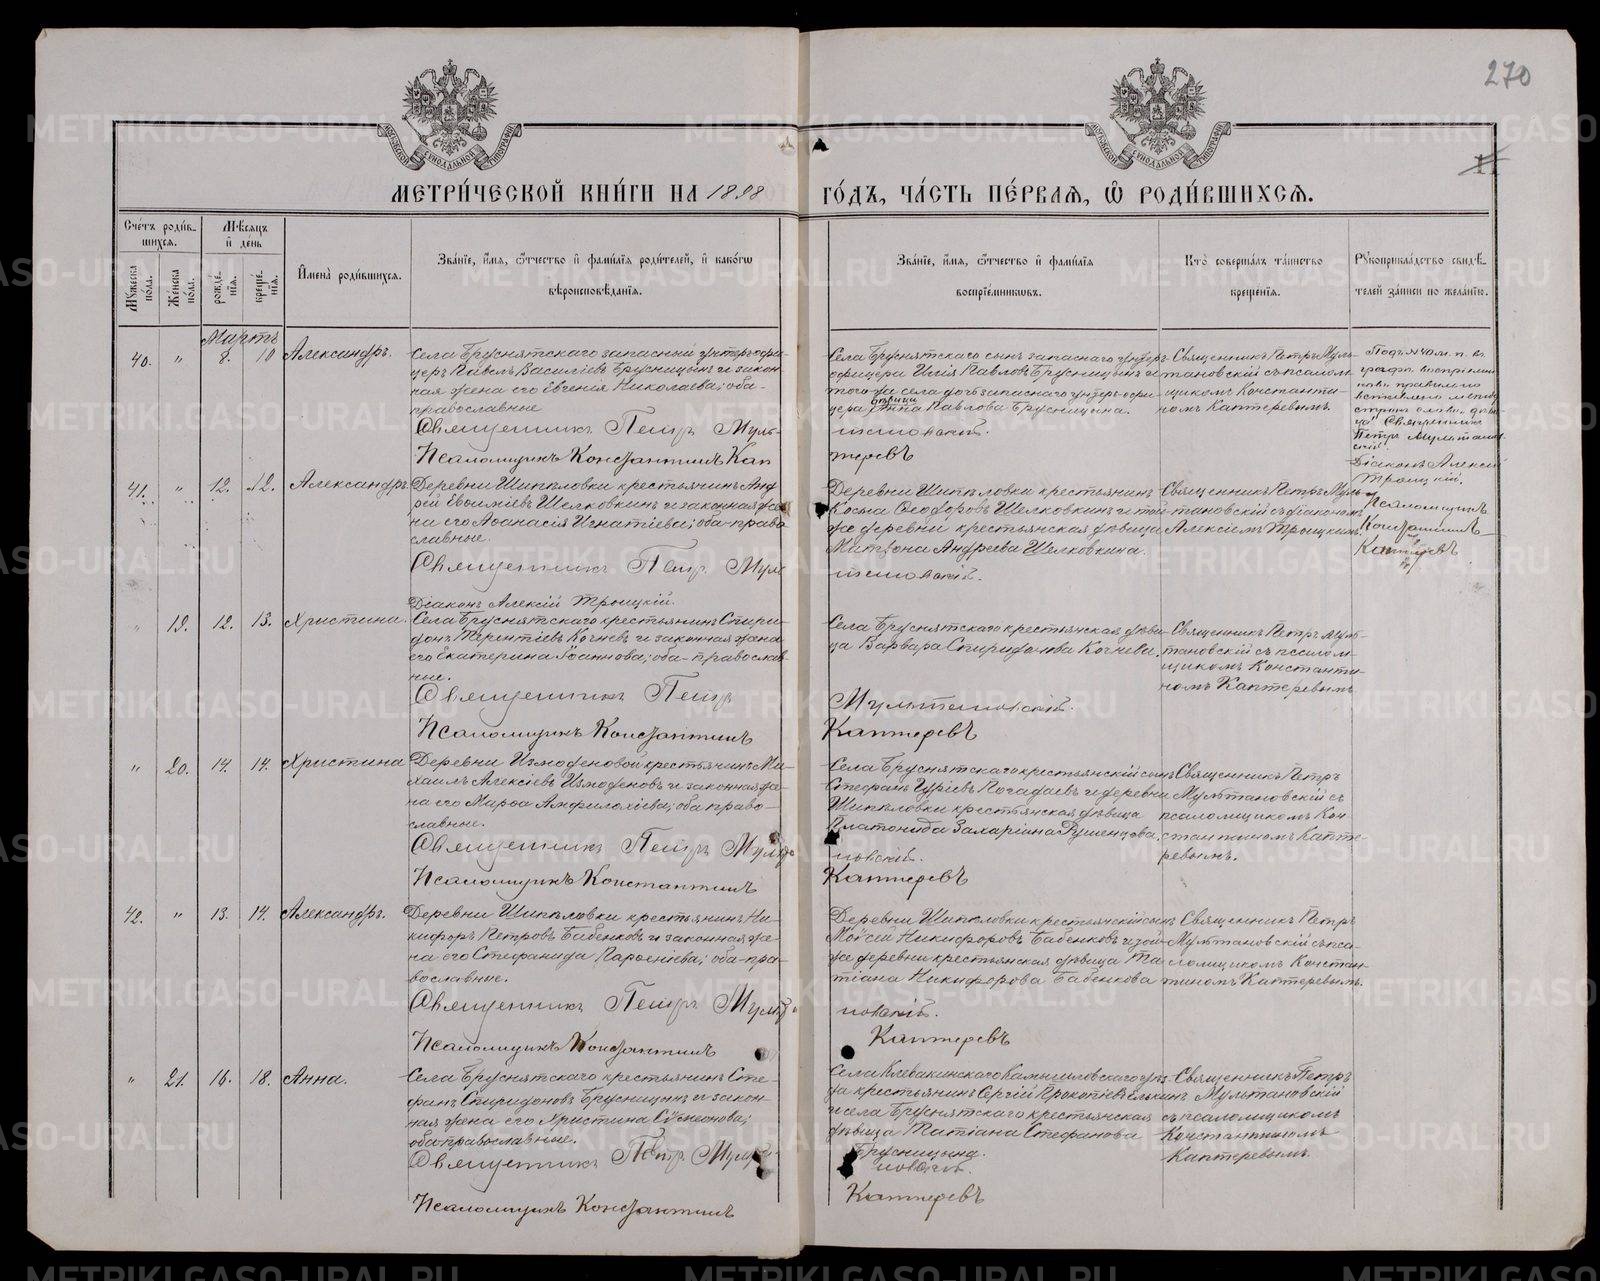 270
МОСКОВСКОЙ СѴНОДАЛЬНОЙ ТИПОГРАФІИ
МОСКОВСКОЙ СѴНОДАЛЬНОЙ ТИПОГРАФІИ
МЕТРИ́ЧЕСКОЙ КНИ́ГИ НА 1898 ГО́ДЪ, ЧА́СТЬ ПЕ́РВАЯ, Ѽ РОДИ́ВШИХСЯ.
Сче́тъ роди́в-
шихся.
Мѣ́сяцъ
и҆ де́нь
Мꙋ́жеска по́ла.
Же́нска по́ла.
рожде́-
нія.
креще́-
нія.
И҆мена̀ роди́вшихся.
Зва́ніе, и҆́мя, ѻ҆́тчество и҆ фами́лія роди́телей, и҆ како́гѡ
вѣроисповѣ́данія.
Зва́ніе, и҆́мя, ѻ҆́тчество и҆ фами́лія
воспріе́мникѡвъ.
Кто̀ соверша́лъ та́инство
креще́нія.
Рꙋкоприкла́дство свидѣ́-
телей за́писи по жела́нію.
Мартъ
40. " 8. 10 Александръ.
Села Бруснятскаго запасный унтеръ-офи-
церъ Павелъ Василіевъ Брусницынъ и закон-
ная жена его Евгенія Николаева; оба-
православные
Священникъ Петръ Муль-
тановскій.
Псаломщикъ Константинъ Кап
теревъ
Села Бруснятскаго сынъ запаснаго унтеръ-
офицера Илія Павловъ Брусницынъ и
того-же села дочь запаснаго унтеръ-офи-
цера девица Анна Павлова Брусницына.
Священникъ Петръ Муль-
тановскій съ псалом-
щикомъ Константи-
номъ Каптеревымъ.
Подъ № 40 м. п. въ
графѣ воспріемни-
ковъ правильно
вставлено между
строкъ слово „деви-
ца“ Священникъ
Петръ Мультанов-
скій
Діаконъ Алексій
Троицкій.
Псаломщикъ
Константинъ
Каптеревъ
41. " 12. 12. Александръ.
Деревни Шипѣловки крестьянинъ Анд-
рей Евѳиміевъ Шелковкинъ и законная же-
на его Аѳанасія Игнатіева; оба-право
славные.
Священникъ Петръ Муль
тановскій.
Діаконъ Алексій Троицкій.
Деревни Шипѣловки крестьянинъ
Косьма Ѳеодоровъ Шелковкинъ и той-
же деревни крестьянская дѣвица
Матрона Андреева Шелковкина.
Священникъ Петръ Муль-
тановскій съ діакономъ
Алексіемъ Троицкимъ.
" 19. 12. 13. Христина.
Села Бруснятскаго крестьянинъ Спири-
донъ Терентіевъ Кочневъ и законная жена
его Екатерина Іоаннова; оба-православ-
ные.
Священникъ Петръ
Мультановскій.
Псаломщикъ Константинъ
Каптеревъ
Села Бруснятскаго крестьянская дѣви-
ца Варвара Спиридонова Кочнева.
Священникъ Петръ Муль-
тановскій съ псалом-
щикомъ Константи-
номъ Каптеревымъ
" 20. 14. 14. Христина
Деревни Измоденовой крестьянинъ Ми-
хаилъ Алексіевъ Измоденовъ и законная же-
на его Марѳа Амфилохіева; оба право-
славные.
Священникъ Петръ Мульта
новскій.
Псаломщикъ Константинъ
Каптеревъ
Села Бруснятскаго крестьянскій сынъ
Стефанъ Гуріевъ Погадаевъ и деревни
Шипѣловки крестьянская дѣвица
Платонида Захаріина Рушенцова.
Священникъ Петръ
Мультановскій съ
псаломщикомъ Кон-
стантиномъ Капте-
ревымъ.
42. " 13. 14. Александръ.
Деревни Шипѣловки крестьянинъ Ни-
кифоръ Петровъ Бабенковъ и законная же-
на его Стефанида Парѳеніева; оба-пра-
вославные.
Священникъ Петръ Мульта
новскій.
Псаломщикъ Константинъ
Каптеревъ
Деревни Шипѣловки крестьянскій сынъ
Моѵсей Никифоровъ Бабенковъ и той-
же деревни крестьянская дѣвица Та-
тіана Никифорова Бабенкова
Священникъ Петръ
Мультановскій съ пса-
ломщикомъ Констан-
тиномъ Каптеревымъ.
" 21. 16. 18. Анна.
Села Бруснятскаго крестьянинъ Сте-
фанъ Спиридоновъ Брусницынъ и закон-
ная жена его Христина Сѵмеонова;
оба православные.
Священникъ Петръ Мульта
новскій.
Псаломщикъ Константинъ
Каптеревъ
Села Клевакинскаго Камышловскаго уѣз-
да крестьянинъ Сергій Прокопіевъ Елькинъ
и села Бруснятскаго крестьянская
дѣвица Татіана Стефанова
Брусницына.
Священникъ Петръ
Мультановскій
съ псаломщикомъ
Константиномъ
Каптеревымъ.
METRIKI.GASO-URAL.RU